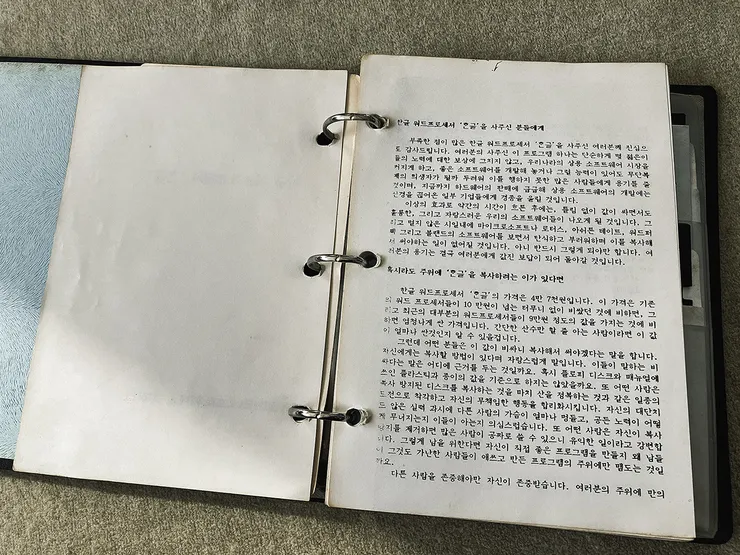 한글 워드프로세서 '흔글'을 사주신 분들에게
부족한 점이 많은 한글 워드프로세서 '흔글'을 사주신 여러분께 진심으
로 감사드립니다. 여러분의 사주신 이 프로그램 하나는 단순하게 몇 젊은이
들의 노력에 대한 보상에 그치지 않고, 우리나라의 상용 소프트웨어 시장을
커지게 하고, 좋은 소프트웨어를 개발해 놓거나 그럴 능력이 있어도 무단복
제의 희생자가 될까 두려워 이를 행하지 못한 많은 사람들에게 용기를 줄
것이며, 지금까지 하드웨어의 판매에 급급해 상용 소프트웨어의 개발에는
신경을 끊어온 일부 기업들에게 경종을 울릴 것입니다.
이상의 효과로 약간의 시간이 흐른 후에는, 틀림 없이 값이 싸면서도
훌륭한, 그리고 자랑스러운 우리의 소프트웨어들이 나오게 될 것입니다. 그
리고 멀지 않은 시일내에 마이크로소프트나 로터스, 아쉬튼 테이트, 워드퍼
펙 그리고 볼랜드의 소프트웨어를 보면서 탄식하고 부러워하며 이를 복사해
서 써야하는 일이 없어질 것입니다. 아니 반드시 그렇게 되야만 합니다. 여
러분의 용기는 결국 여러분에게 값진 보답이 되어 돌아갈 것입니다.
혹시라도 주위에 '흔글'을 복사하려는 이가 있다면
한글 워드프로세서 '흔글'의 가격은 4만 7천원입니다. 이 가격은 기존
의 워드 프로세서들이 10 만원이 넘는 터무니 없이 비쌌던 것에 비하면, 그
리고 최근의 대부분의 워드프로세서들이 9만원 정도의 값을 가지는 것에 비
하면 엄청나게 싼 가격입니다. 간단한 산수만 할 줄 아는 사람이라면 이 값
이 얼마나 싼것인지 알 수 있을겁니다.
그런데 어떤 분들은 이 값이 비싸니 복사해서 써야겠다는 말을 합니다.
자신에게는 복사할 방법이 있다며 자랑스럽게 말입니다. 이들이 말하는 비
싸다는 말은 어디에 근거를 두는 것일까요. 혹시 플로피 디스크와 매뉴얼에
쓰인 플라스틱과 종이의 값을 기준으로 하지는 않았을까요. 또 어떤 사람은
복사 방지된 디스크를 복사하는 것을 마치 산을 정복하는 것과 같은 일종의
도전으로 착각하고 자신의 무책임한 행동을 합리화시킵니다. 자신의 대단치
도 않은 실력 과시에 다른 사람의 가슴이 얼마나 멍들고, 공든 노력이 어떻
게 무너지는지 이들이 아는지 의심스럽습니다. 또 어떤 사람은 자신이 복사
방지를 제거하면 많은 사람이 공짜로 쓸 수 있으니 유익한 일이라고 강변합
니다. 그렇게 남을 위한다면 자신이 직접 좋은 프로그램을 만들지 왜 남들
이 그것도 가난한 사람들이 애쓰고 만든 프로그램의 주위에만 맴도는 것일
까요.
다른 사람을 존중해야만 자신이 존중받습니다. 여러분의 주위에 만의